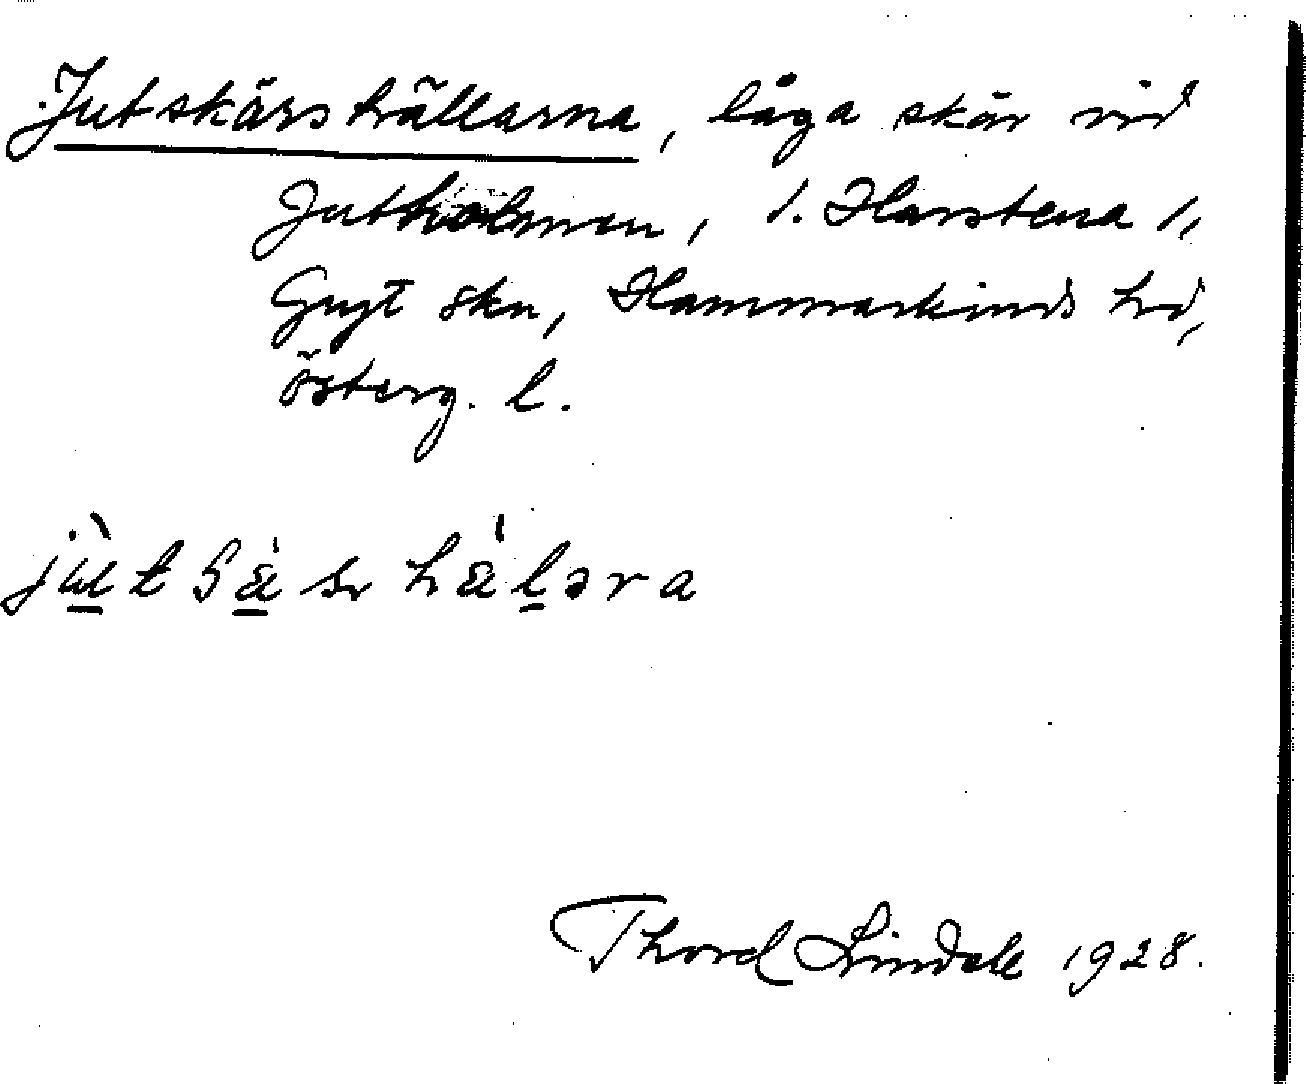 Jutskärshällarna, låga skär vid
Jutholmen, /. Harstena /,
Gryt skn, Hammarkinds hd,
Österg. l.
Thord Lindalé 1928.